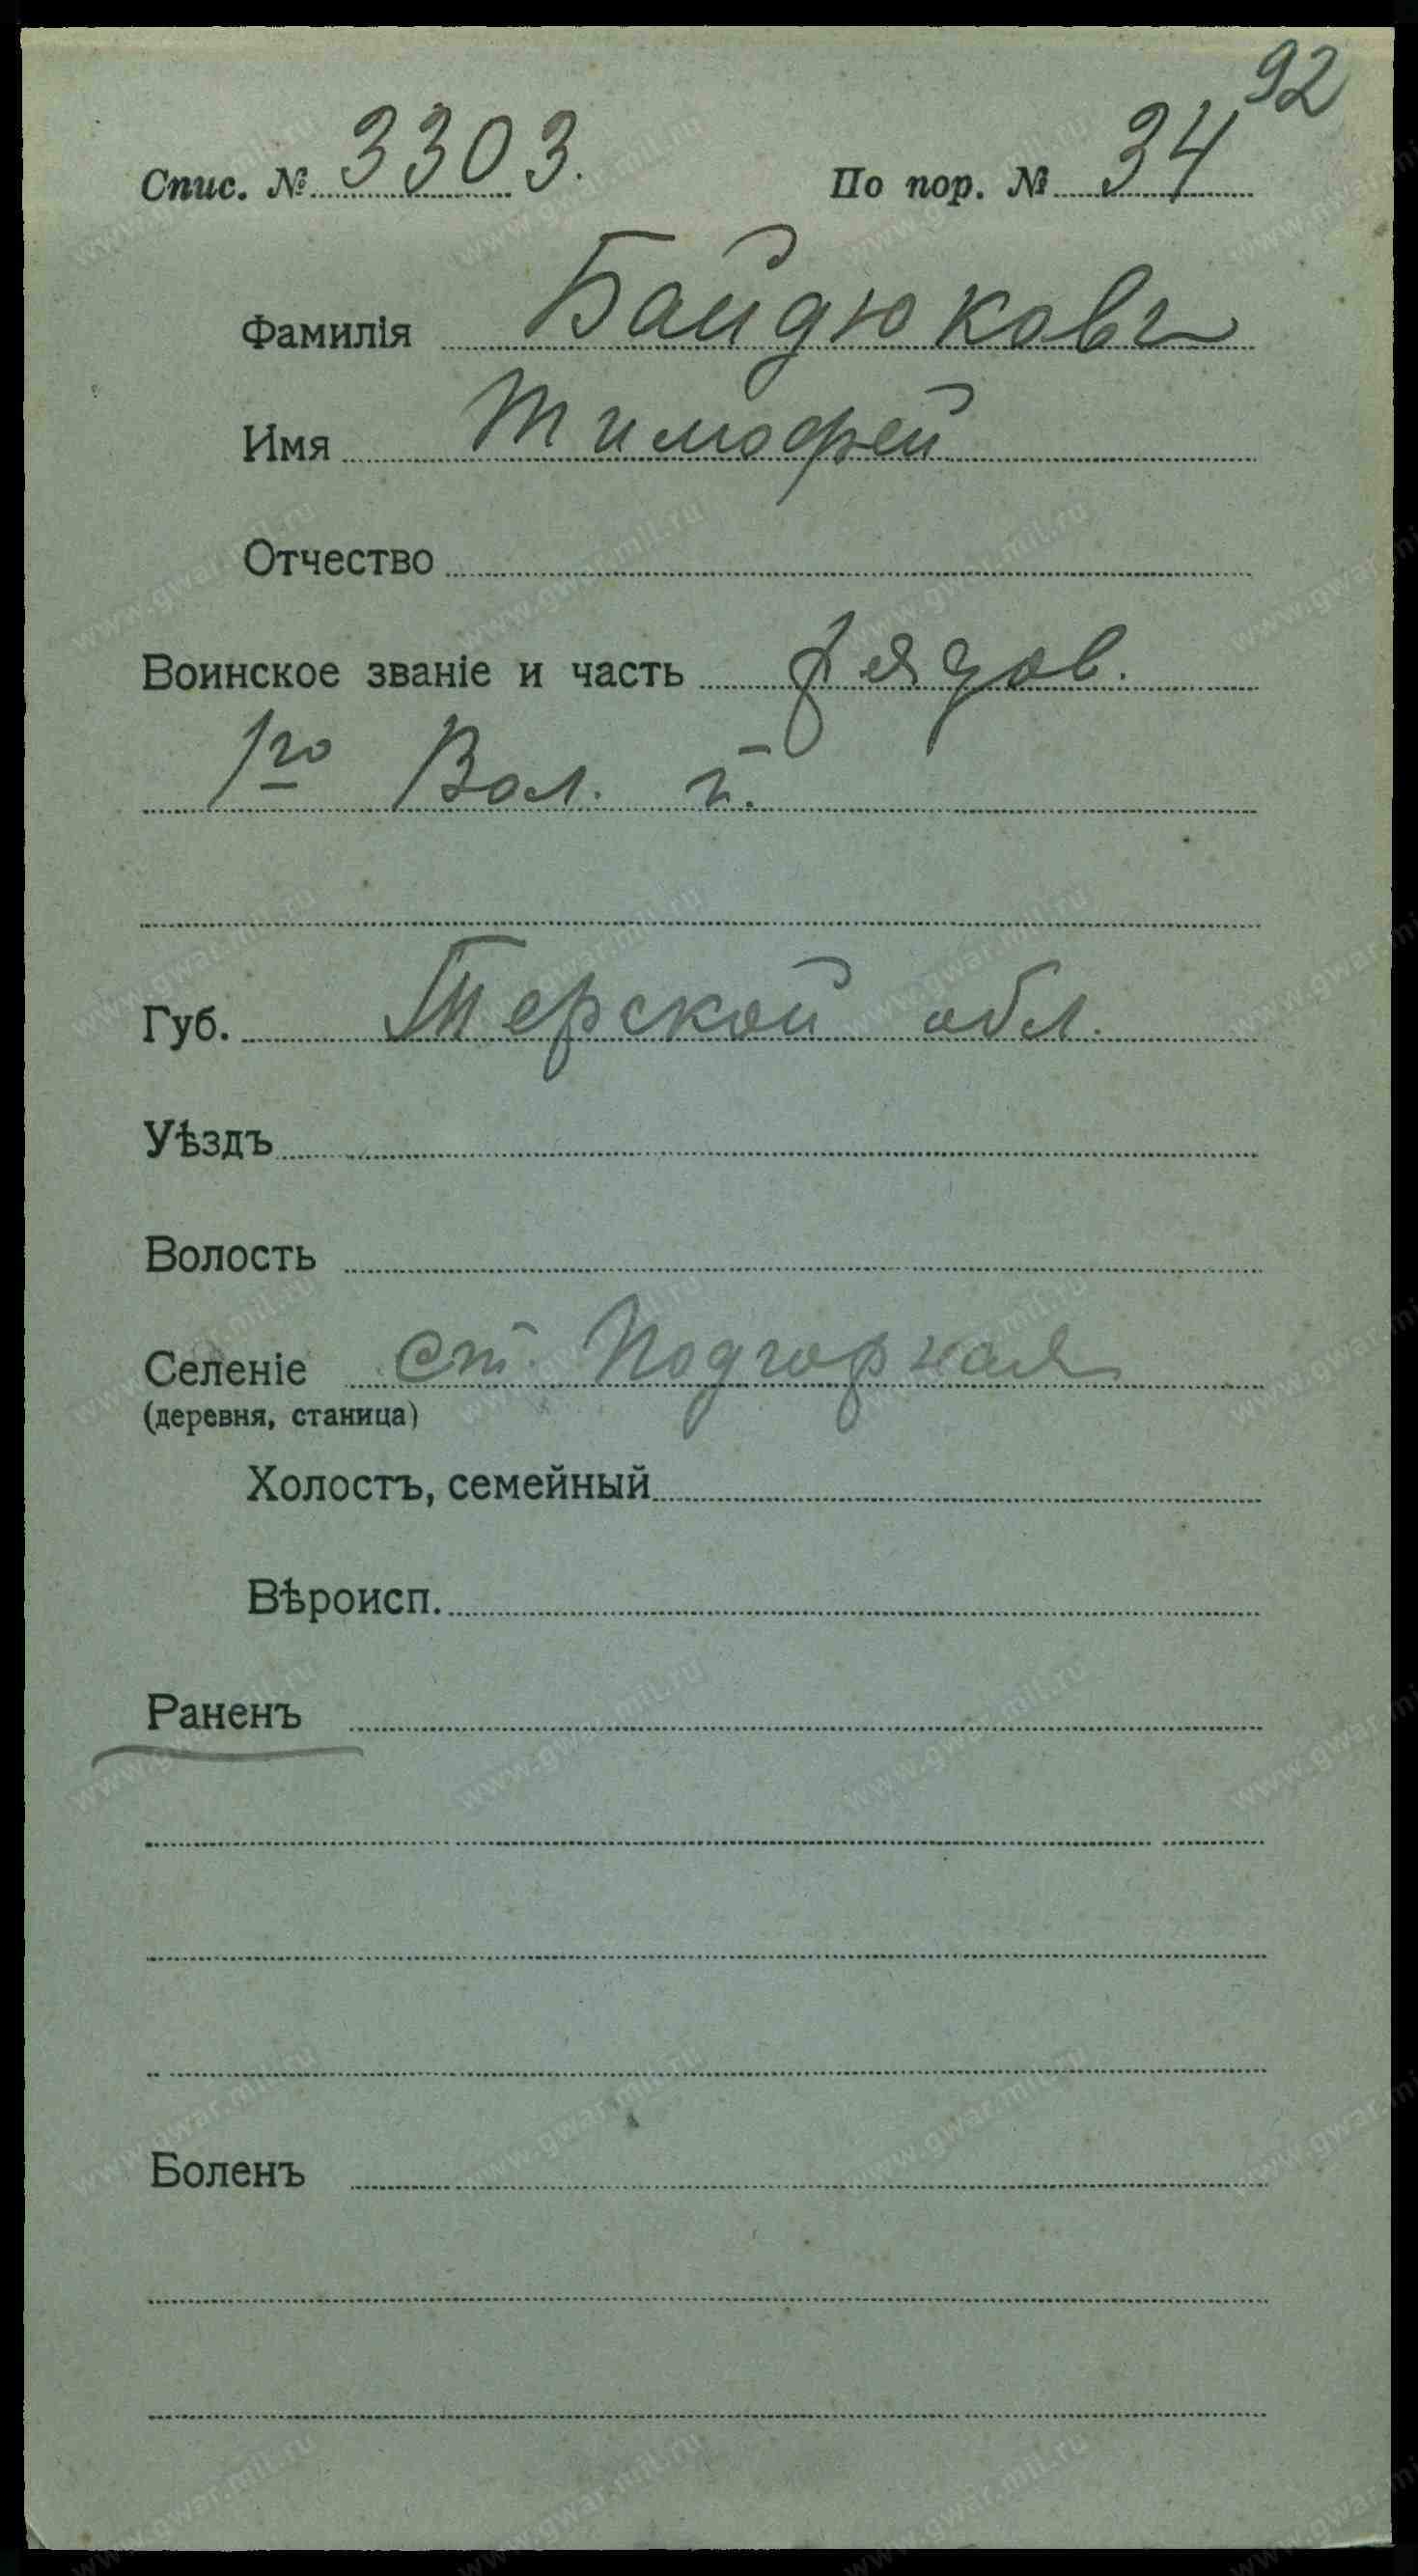 92
Спис. № 3303. По пор. № 34
Фамилія Байдюковъ
Имя Тимофей
Отчество
Воинское званіе и часть рядов.
1го Вол. п.
Губ. Терской обл.
Уѣздъ
Волость
Селеніе ст. Подгорная
(деревня, станица)
Холостъ, семейный
Вѣроисп.
Раненъ
Боленъ
www.gwar.mil.ru